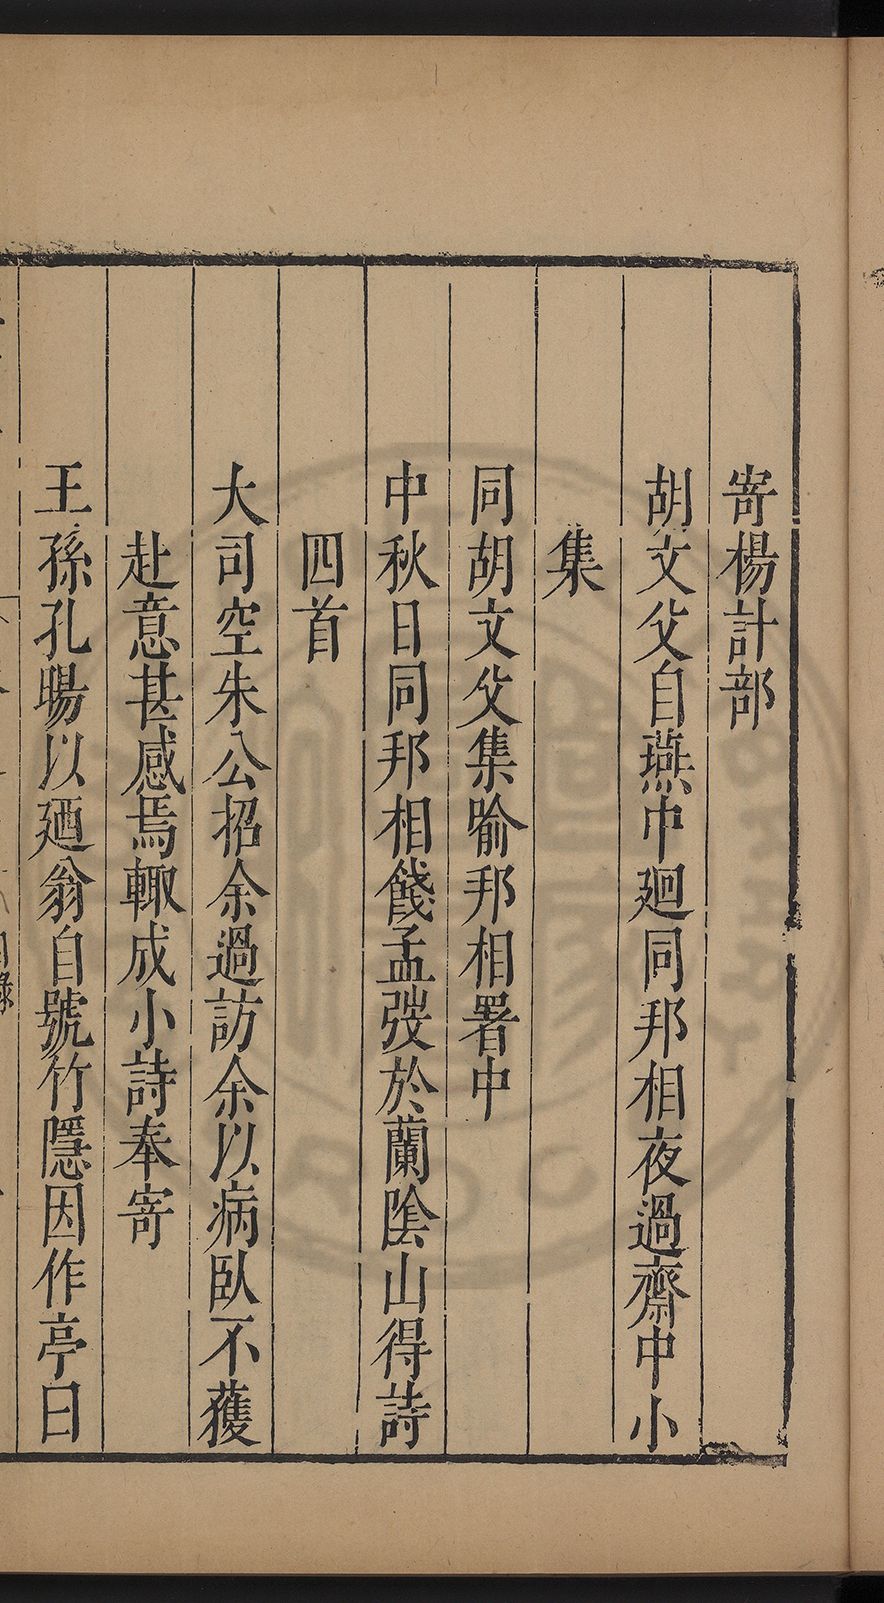 寄楊計部
胡文父自燕中廻同邦相夜過齋中小
集
同胡文父集喻邦相署中
中秋日同邦相餞孟弢於蘭隂山得詩
四首
大司空朱公招余過訪余以病臥不獲
赴意甚感焉輙成小詩奉寄
王孫孔暘以廼翁自號竹隱因作亭曰
目錄